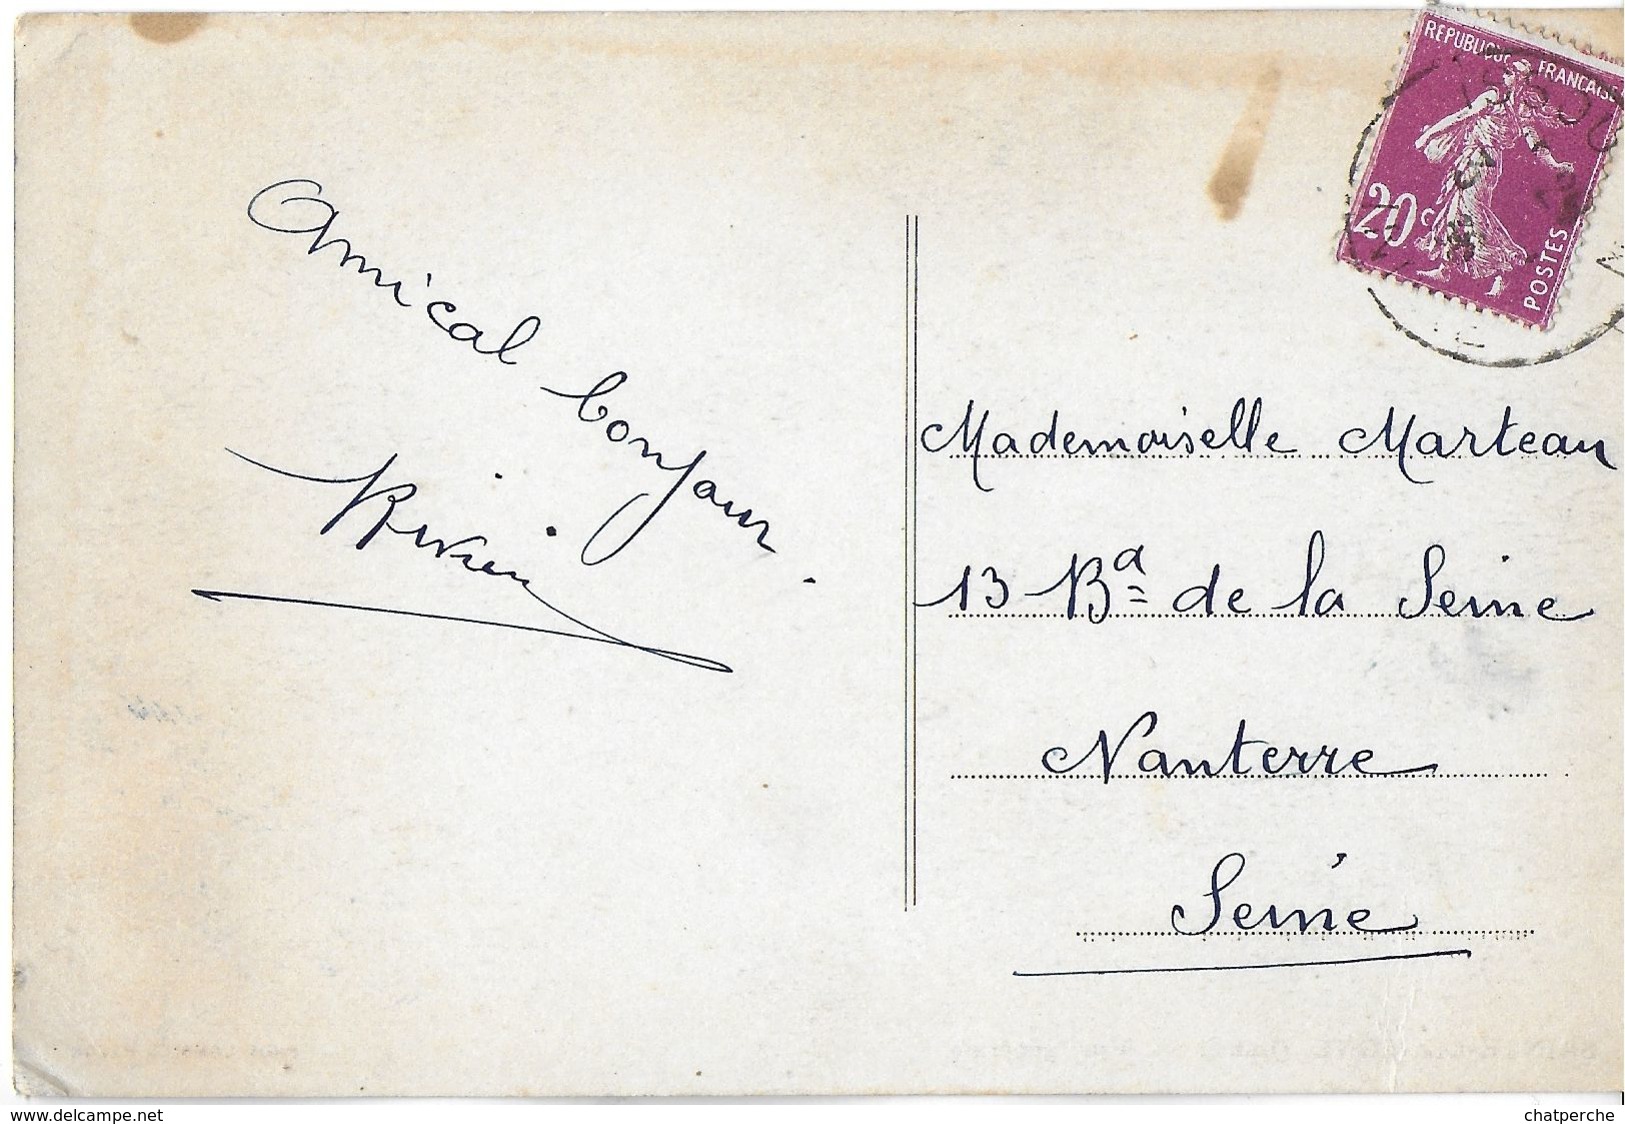 Amical bonjour.
Mademoiselle Marteau
13 Bd de la Seine
Nanterre
Seine
REPUBLIQUE FRANÇAISE
20c
POSTES
www.delcampe.net
chatperche